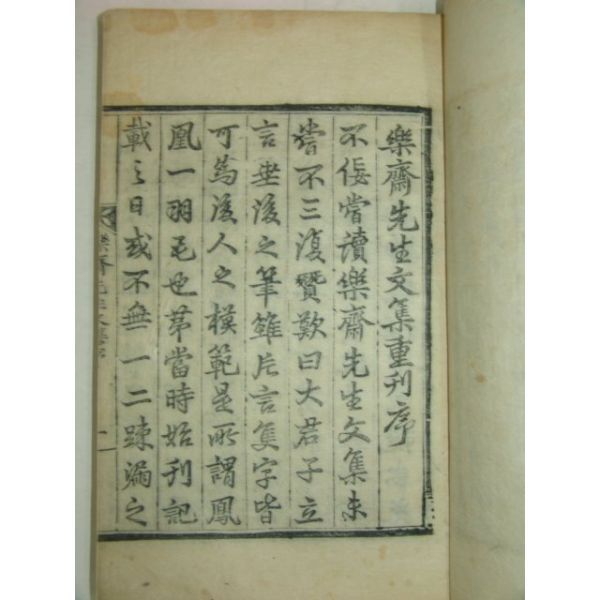 樂齋先生文集重刊序
不佞嘗讀樂齋先生文集未
嘗不三復贊歎曰大君子立
言垂後之筆雖片言隻字皆
可爲後人之模範是所謂鳳
凰一羽毛也苐當時始刊記
載之日或不無一二踈漏之
樂齋先生文集序
一